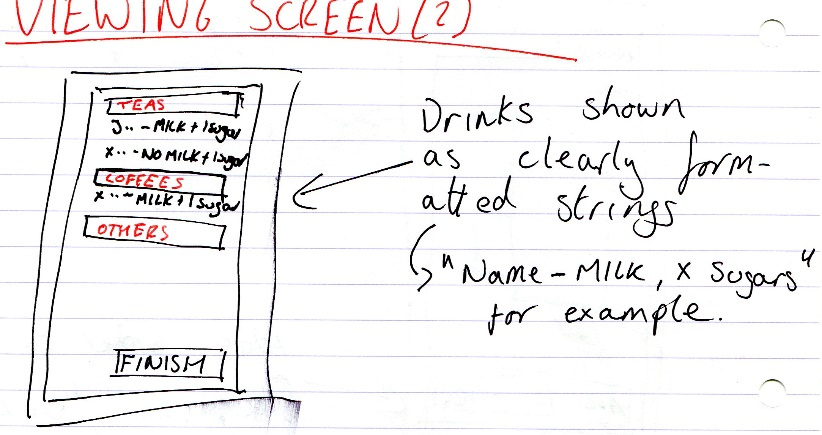 VIEWING SCREEN (2)
TEAS
J.. - MILK + 1 Sugar
x.. - NO MILK + 1 Sugar
COFEEES
x.. - MILK + 1 Sugar
OTHERS
FINISH
Drinks shown
as clearly form-
atted strings
"Name - MILK, x Sugars"
for example.